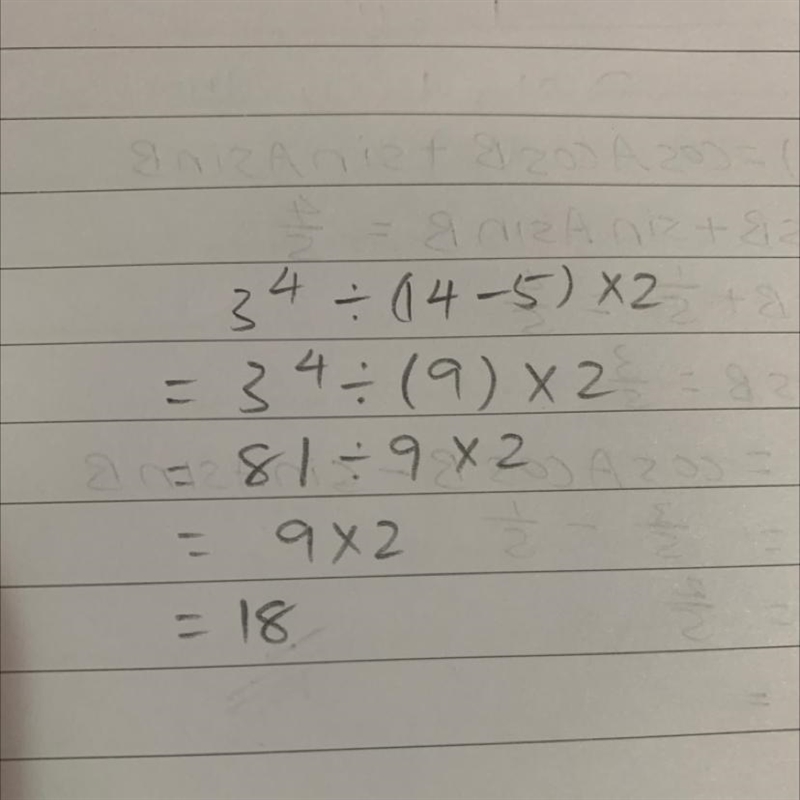 3⁴ ÷ (14 - 5) × 2
= 3⁴ ÷ (9) × 2
= 81 ÷ 9 × 2
= 9 × 2
= 18